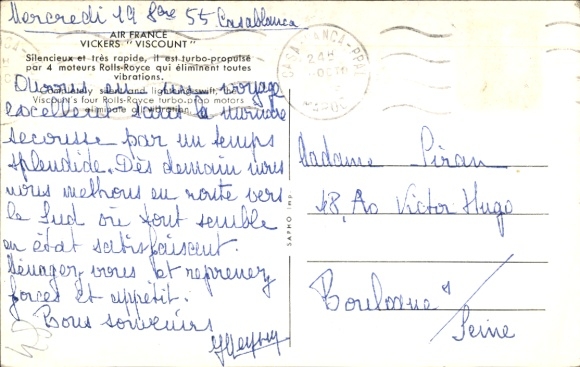 Mercredi 19 8bre 55 Casablanca
AIR FRANCE
VICKERS "VISCOUNT"
Silencieux et très rapide, il est turbo-propulsé
par 4 moteurs Rolls-Royce qui éliminent toutes
vibrations.
Viscount's four Rolls-Royce turbo-prop motors
voyage
excellent sans la moindre
secousse par un temps
splendide. Dès demain nous
nous mettons en route vers
le Sud où tout semble
en état satisfaisant.
Ménagez vous et reprenez
forces et appétit.
Bons souvenirs
SAPHO Imp.
CASABLANCA-PPAL
24H
OCTB
Madame Piran
18, Av Victor Hugo
Boulogne s/
Seine